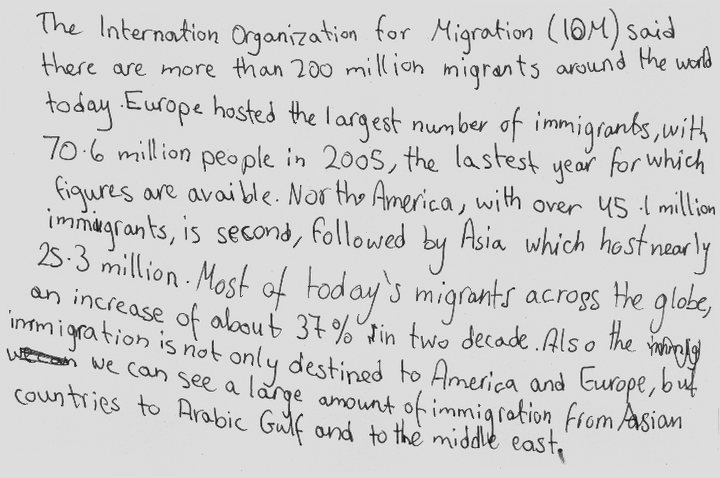 The Internation Organization for Migration (IOM) said
there are more than 200 million migrants around the world
today. Europe hosted the largest number of immigrants, with
70.6 million people in 2005, the lastest year for which
figures are avaible. North America, with over 45.1 million
immigrants, is second, followed by Asia which host nearly
25.3 million. Most of today's migrants across the globe,
an increase of about 37% in two decade. Also the
immigration is not only destined to America and Europe, but
we can see a large amount of immigration from Asian
countries to Arabic Gulf and to the middle east.